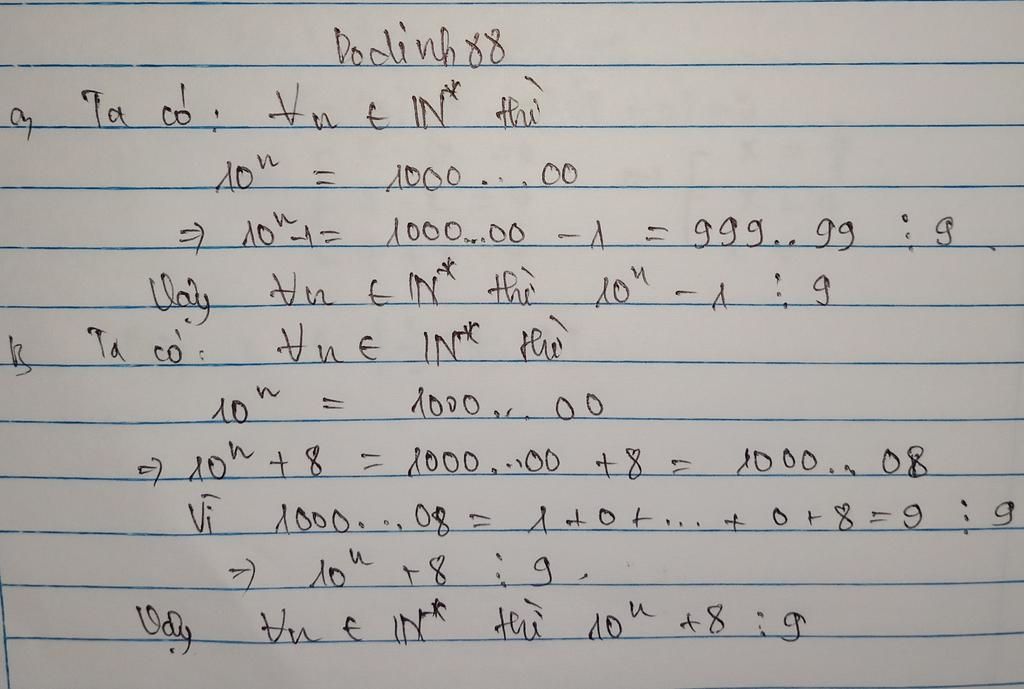 Dodinh88
a, Ta có: ∀n ∈ ℕ* thì
10ⁿ = 1000...00
⇒ 10ⁿ-1 = 1000...00 - 1 = 999..99 ⋮ 9.
Vậy ∀n ∈ ℕ* thì 10ⁿ - 1 ⋮ 9
b, Ta có: ∀n ∈ ℕ* thì
10ⁿ = 1000... 00
⇒ 10ⁿ + 8 = 1000...00 + 8 = 1000.. 08
Vì 1000...08 = 1 + 0 + ... + 0 + 8 = 9 ⋮ 9
⇒ 10ⁿ + 8 ⋮ 9.
Vậy ∀n ∈ ℕ* thì 10ⁿ + 8 ⋮ 9